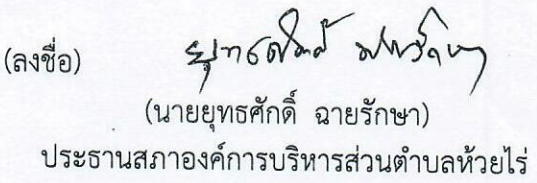 (ลงชื่อ)
(นายยุทธศักดิ์ ฉายรักษา)
ประธานสภาองค์การบริหารส่วนตำบลห้วยไร่